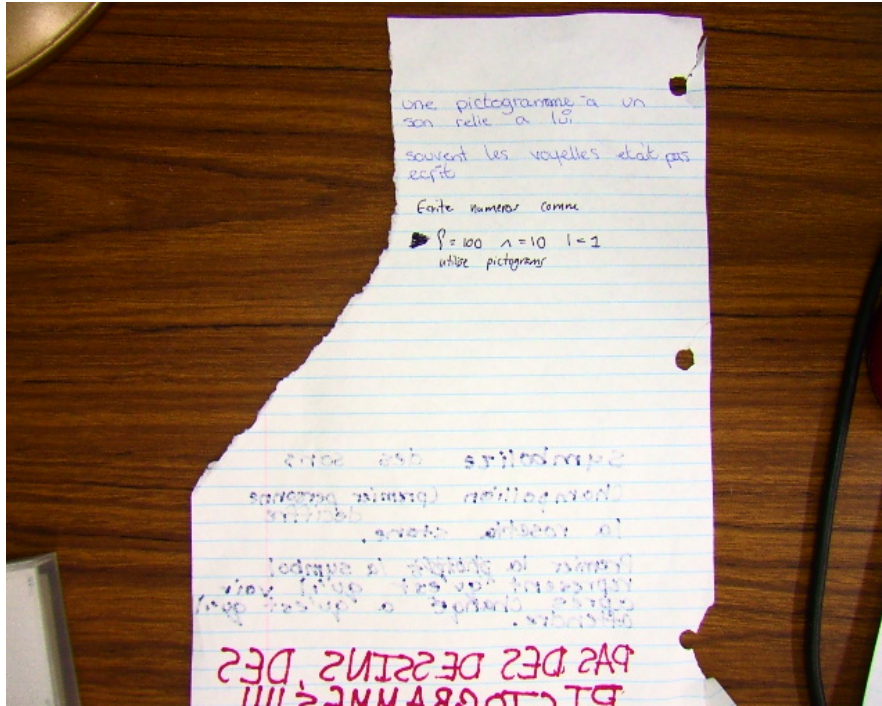 une pictogramme a un
son relie a lui
souvent les voyelles etait pas
ecrit
Ecrite numeros comme
= 100 ∧ = 10 | = 1
utilise pictograms
Symbolize des sons
Champollion (premier personne
decifre
la rosetta stone.
Premier la the symbol
represent qu'est qu'il voir
apres change a qu'est qu'il
entendre.
PAS DES DESSINS, DES
PICTOGRAMMES !!!!